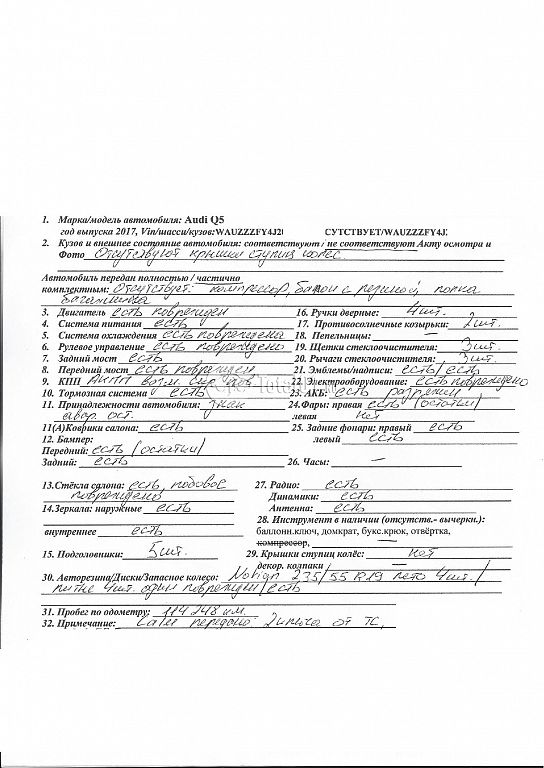 1. Марка/модель автомобиля: Audi Q5
год выпуска 2017, Vin/шасси/кузов:WAUZZZFY4J2 СУТСТВУЕТ/WAUZZZFY4J
2. Кузов и внешнее состояние автомобиля: соответствуют / не соответствуют Акту осмотра и
Фото Отсутствуют крышки ступиц колес
Автомобиль передан полностью / частично
комплектным: Отсутствует: компрессор, балон с резиной, полка
багажника
3. Двигатель есть поврежден 16. Ручки дверные: 4шт.
4. Система питания есть 17. Противосолнечные козырьки: 2шт.
5. Система охлаждения есть повреждена 18. Пепельницы: —
6. Рулевое управление есть повреждено 19. Щетки стеклоочистителя: 3шт.
7. Задний мост есть 20. Рычаги стеклоочистителя: 3шт.
8. Передний мост есть поврежден 21. Эмблемы/надписи: есть/есть
9. КПП АКПП возм. скр. деф. 22. Электрооборудование: есть повреждено
10. Тормозная система есть 23. АКБ: есть разряжен
11. Принадлежности автомобиля: знак 24.Фары: правая есть (остатки)
авар. ост. левая нет
11(А)Коврики салона: есть 25. Задние фонари: правый есть
12. Бампер: левый есть
Передний: есть (остатки)
Задний: есть 26. Часы: —
13.Стёкла салона: есть, лобовое 27. Радио: есть
повреждено Динамики: есть
14.Зеркала: наружные есть Антенна: есть
28. Инструмент в наличии (отсутств.- вычеркн.):
внутреннее есть баллонн.ключ, домкрат, букс.крюк, отвёртка,
компрессор,
15. Подголовники: 5шт. 29. Крышки ступиц колёс: нет
декор. колпаки —
30. Авторезина/Диски/Запасное колесо: Nokian 235/55 R19 лето 4шт./
литые 4шт. один поврежден/есть
31. Пробег по одометру: 114248 км.
32. Примечание: передано 2 ключа от ТС,